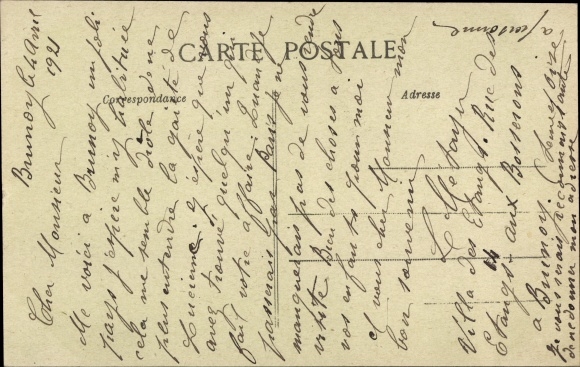 CARTE POSTALE
Correspondance
Adresse
Brunoy le 4 Avril
1921
Cher Monsieur
Me voici à Brunoy un joli
pays j'espère m'y
cela me semble drôle de ne
plus entendre la gaité de
Lucienne. J'espère que vous
avez trouvé quelqu'un qui
fait votre affaire. Quand je
passerais par Paris je ne
manquerais pas de vous rendre
visite Bien des choses à vos
vos enfants pour moi
et vous cher Monsieur mon
bon souvenir
L. Metayer
Villa des Etangs. Rue des
Etangs aux Bosserons
à Brunoy. Seine et Oise
Je vous serais reconnaissante
de ne donner mon adresse
à personne